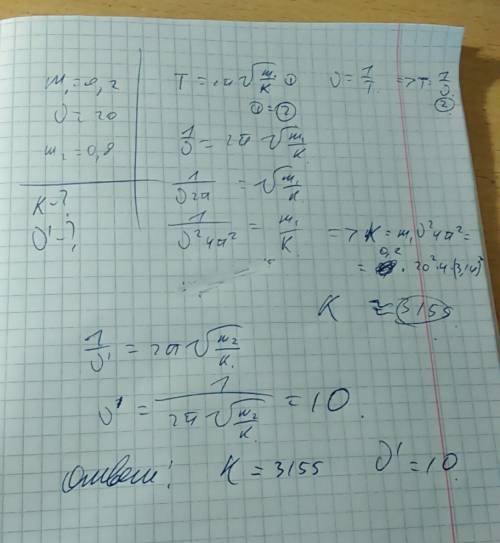 m₁ = 0,2
ν = 20
m₂ = 0,8
K - ?
ν' - ?
T = 2π√(m₁/K) ① ν = 1/T => T = 1/ν ②
① = ②
1/ν = 2π√(m₁/K)
1/(ν2π) = √(m₁/K)
1/(ν²4π²) = m₁/K => K = m₁ν²4π² =
= 0,2 · 20² · 4 · (3,14)²
K ≈ 3155
1/ν' = 2π√(m₂/K)
ν' = 1/(2π√(m₂/K)) = 10
Ответ: K = 3155 ν' = 10